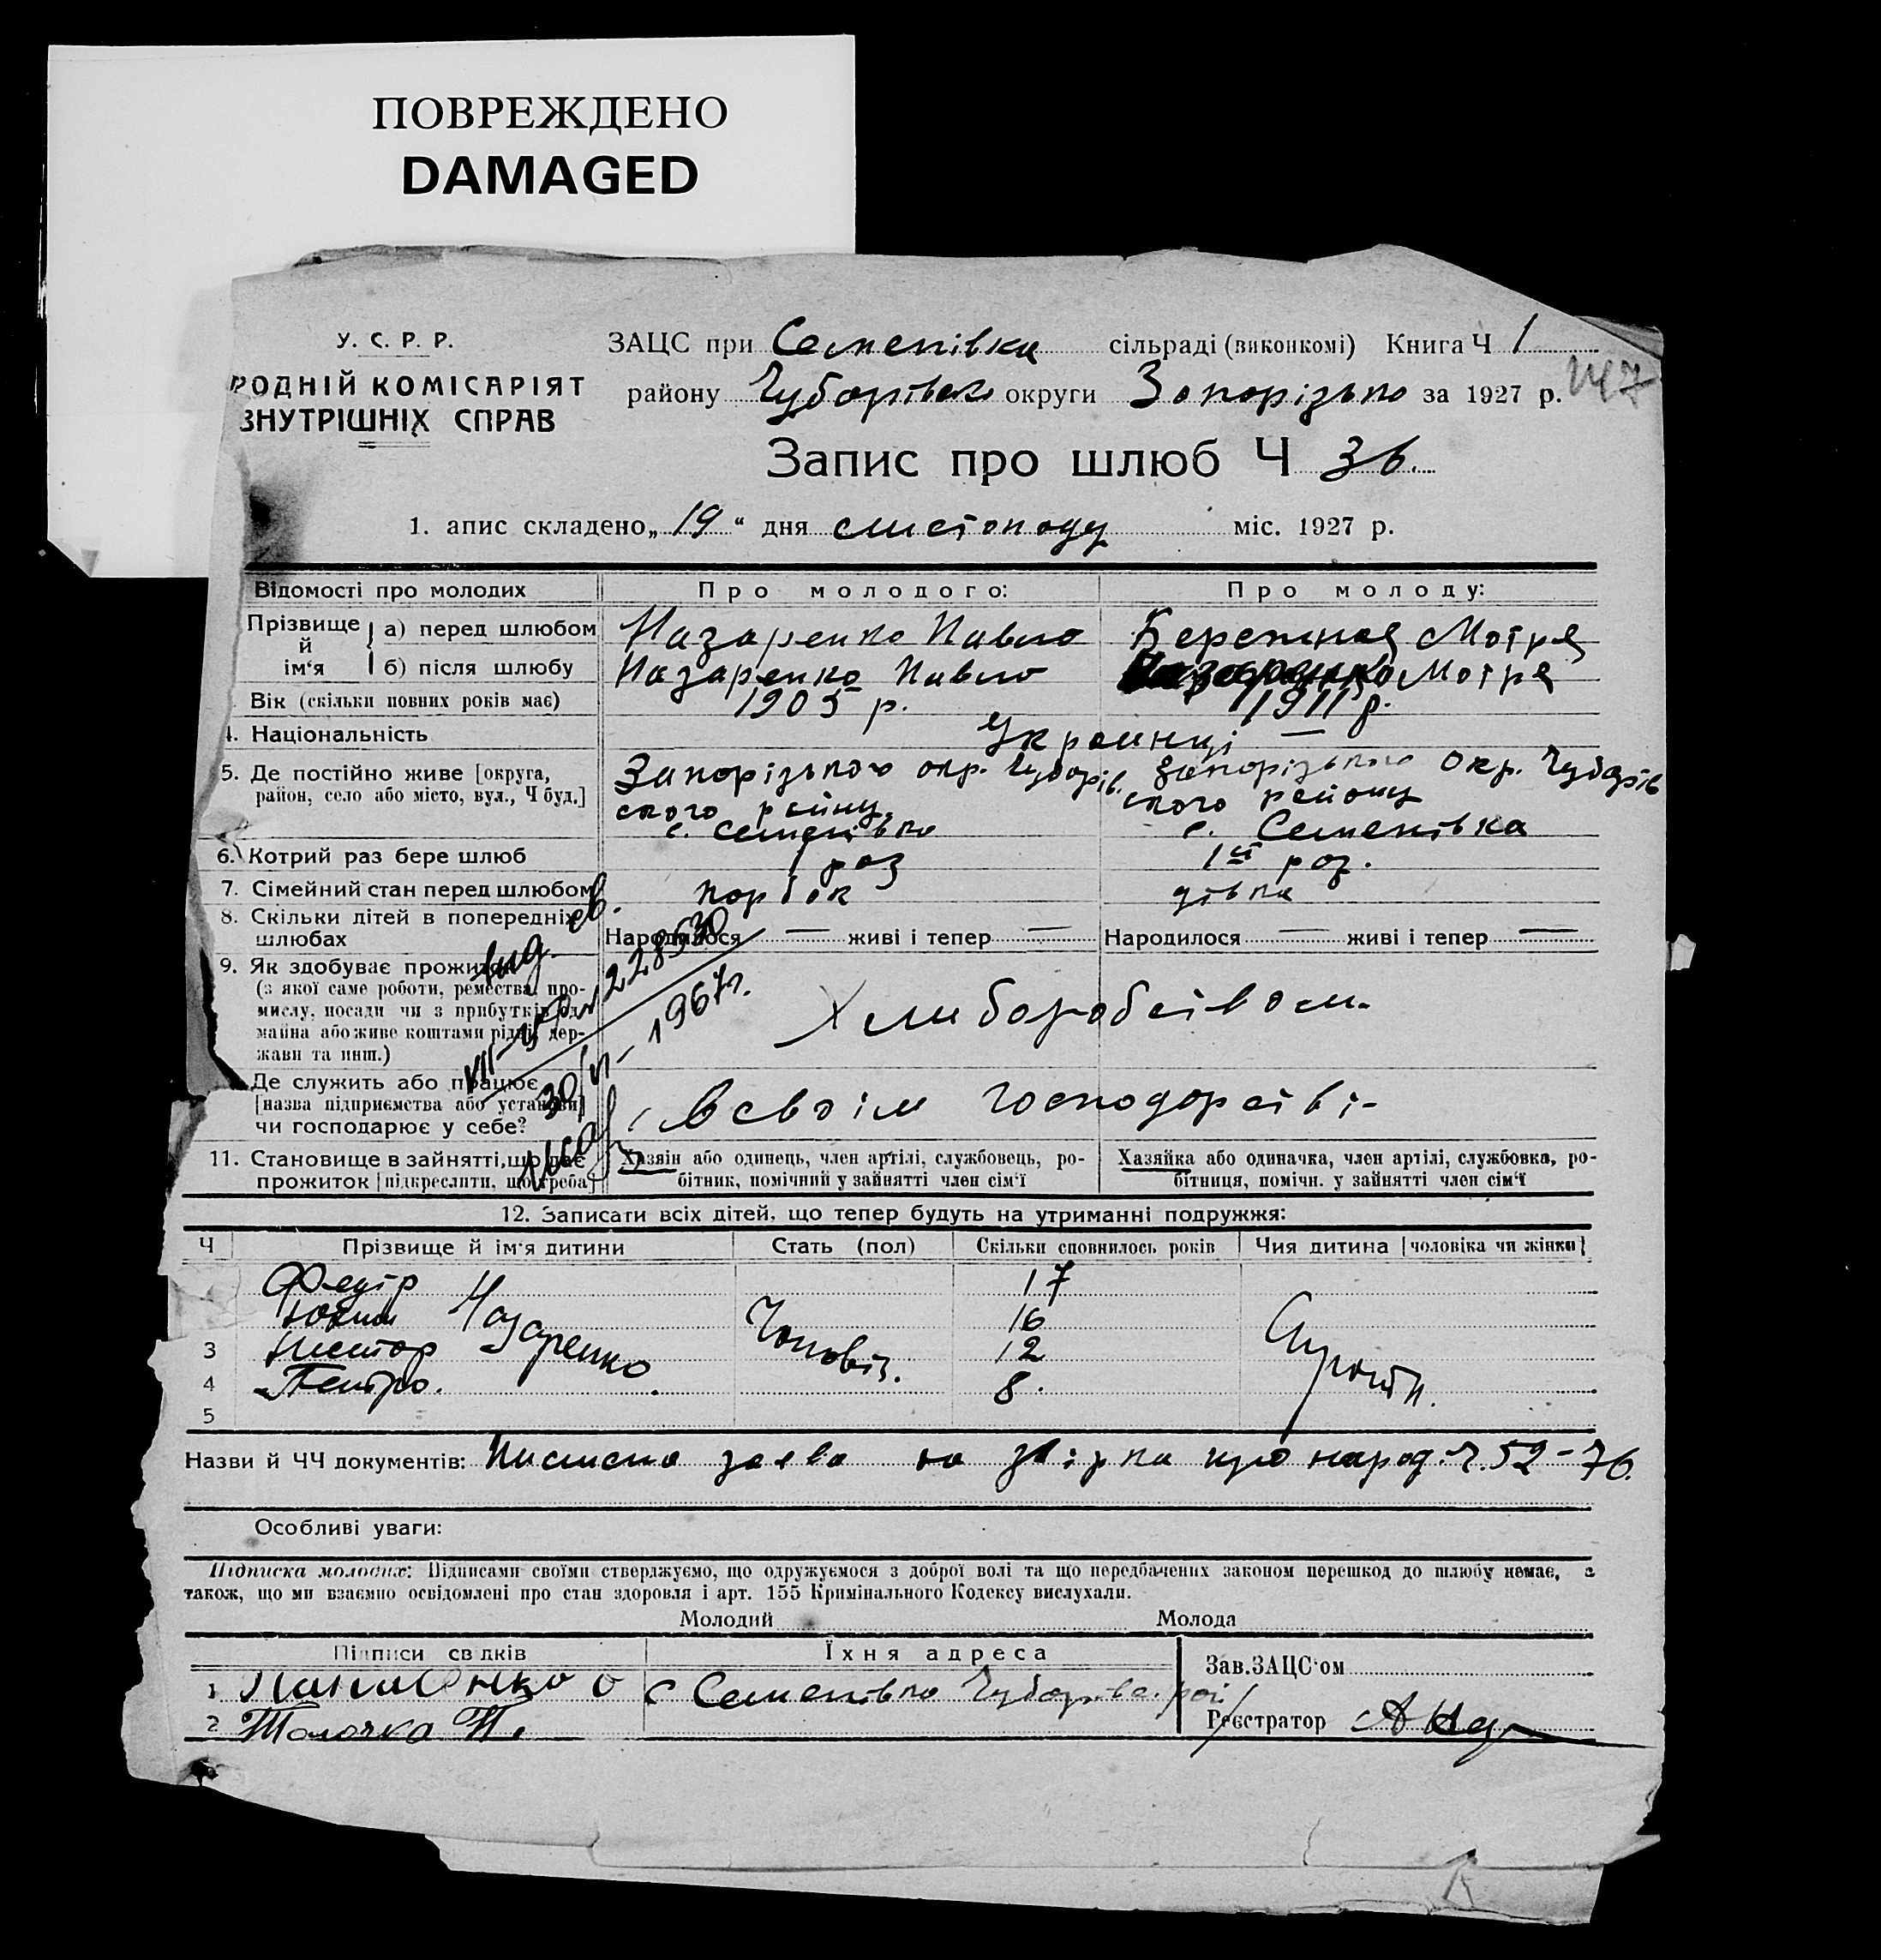 ПОВРЕЖДЕНО
DAMAGED
У. С. Р. Р.
РОДНІЙ КОМІСАРІЯТ
ЗНУТРІШНІХ СПРАВ
ЗАЦС при Семенівка сільраді (виконкомі) Книга Ч 1
району Чубарівсько округи Запорізько за 1927 р.
Запис про шлюб Ч 36.
1. апис складено „19“ дня листопаду міс. 1927 р.
Відомості про молодих Про молодого: Про молоду:
Прізвище й ім‘я а) перед шлюбом Назаренко Павло Бережная Мотря
б) після шлюбу Назаренко Павло Назаренко Мотря
Вік (скільки повних років має) 1905 р. 1911 р.
4. Національність Украинці —
5. Де постійно живе [округа, район, село або місто, вул., Ч буд.]
Запорізького окр. Чубарівського району с. Семенівка
Запорізького окр. Чубарівського району с. Семенівка
6. Котрий раз бере шлюб 1 раз 1й раз.
7. Сімейний стан перед шлюбом парубок дівка
8. Скільки дітей в попередніх шлюбах Народилося — живі і тепер — Народилося — живі і тепер —
9. Як здобуває прожиток
(з якої саме роботи, ремества, про-
мислу, посади чи з прибутків од
майна або живе коштами рідні, дер-
жави та инш.)
Хлиборобством.
Де служить або працює
[назва підприємства або установи]
чи господарює у себе?
В своім господарстві
выд. св.
228530
1967г.
11. Становище в зайнятті, що дає
прожиток [підкреслити, що треба]
Хазяїн або одинець, член артілі, службовець, ро-
бітник, помічний у зайнятті член сім‘ї
Хазяйка або одиначка, член артілі, службовка, ро-
бітниця, помічн. у зайнятті член сім‘ї
12. Записати всіх дітей, що тепер будуть на утриманні подружжя:
Ч Прізвище й ім‘я дитини Стать (пол) Скільки сповнилось років Чия дитина [чоловіка чи жінки]
Федір 17
Юхим Назаренко 16
3 Нестор Чоловіч. 12 Сироти.
4 Петро. 8.
5
Назви й ЧЧ документів: Писмена заява та звірка про народ. Ч. 52-76.
Особливі уваги:
Підписка молодих: Підписами своїми стверджуємо, що одружуємося з доброї волі та що передбачених законом перешкод до шлюбу немає, а
також, що ми взаємно освідомлені про стан здоровля і арт. 155 Кримінального Кодексу вислухали.
Молодий Молода
Підписи свідків Їхня адреса
Зав.ЗАЦС‘ом
1 с Семенівка Чубарівс. рай
2 Толочко П. Реєстратор